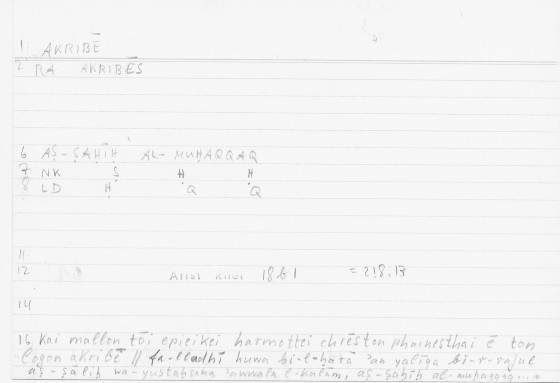 1 AKRIBĒ
2 RA AKRIBĒS
6 AṢ-ṢAḤĪḤ AL-MUḤAQQAQ
7 NK Ṣ Ḥ Ḥ
8 LD Ḥ Q Q
11
12 18b1 = 218.13
14
16 Kai mallon tōi epieikei harmottei chrēston phainesthai ē ton
logon akribē // fa-lladhī huwa bi-l-ḥarā ʾan yalīqa bi-r-rajul
aṣ-ṣāliḥ wa-yustaḥsana ʾawwala l-kalām, aṣ-ṣaḥīḥ al-muḥaqqaq...